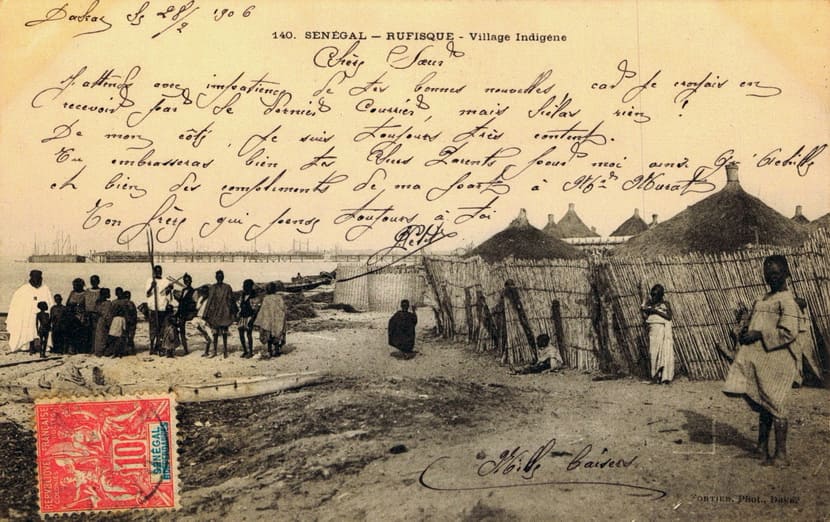 Dakar le 28/2 1906
140. SÉNÉGAL — RUFISQUE - Village Indigène
Chère Sœur
J'attends avec impatience de tes bonnes nouvelles, car je croyais en
recevoir par le dernier Courrier, mais hélas rien !
De mon côté, je suis toujours très content.
Tu embrasseras bien tes Chers Parents pour moi ainsi
et bien des compliments de ma part à Murat
Ton frère qui pense toujours à toi
Mille baisers
RÉPUBLIQUE FRANÇAISE
COLONIES
POSTES
10
SÉNÉGAL
FORTIER, Phot., Dakar